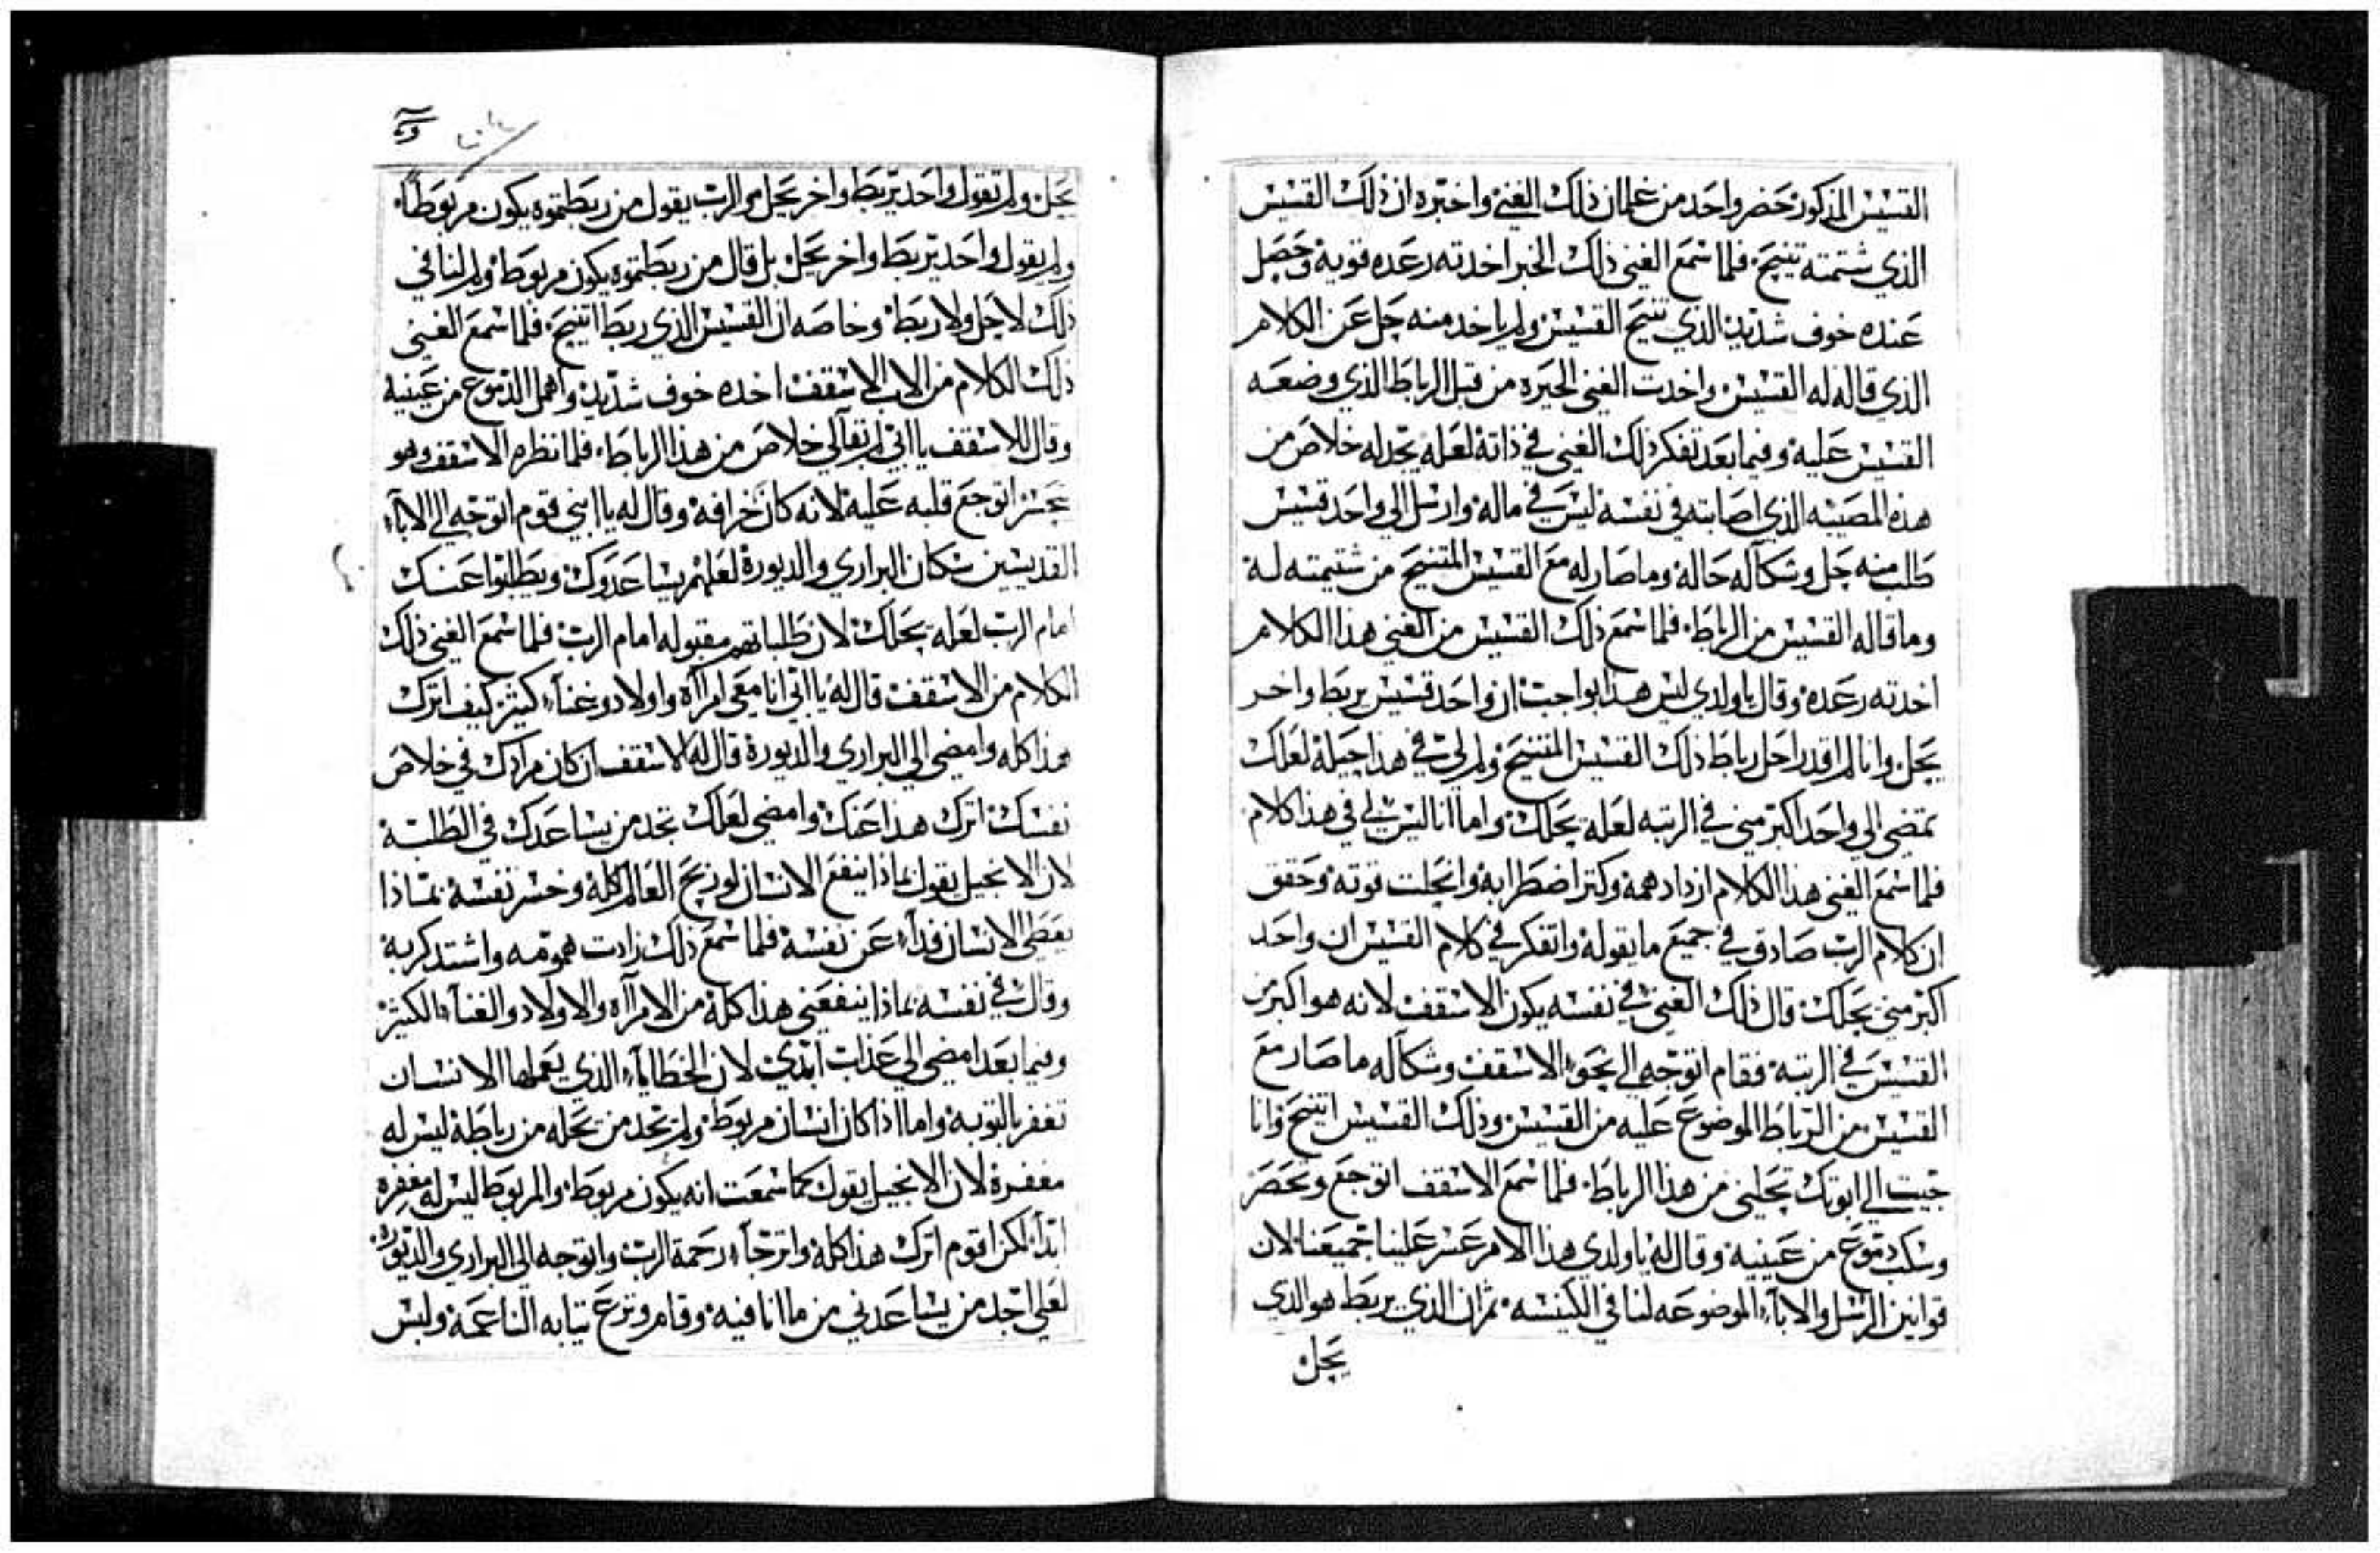 القسيس المذكور حضر واحد من غلمان ذلك الغني واخبره ان ذلك القسيس
الذي شتمته تنيح فلما سمع الغني ذلك الخبر اخدته رعده قويه وحصل
عنده خوف شديد الذي تنيح القسيس ولم ياخد منه حل عن الكلام
الذي قاله له القسيس واخدت الغني الحيره من قبل الرباط الذي وضعه
القسيس عليه وفيما بعد تفكر ذلك الغني في ذاته لعله يجد له خلاص من
هذه المصيبه الذي اصابته في نفسه ليس في ماله وارسل الي واحد قسيس
طلب منه حل وشكا له حاله وما صار له مع القسيس المتنيح من شتيمته له
وما قاله القسيس من الرباط فلما سمع ذلك القسيس من الغني هذا الكلام
اخدته رعده وقال يا ولدي ليس هذا بواجب ان واحد قسيس يربط واخر
يحل وانا لم اقدر احل رباط ذلك القسيس المتنيح ولم لي في هذا حيلة لعلك
تمضي الي واحد اكبر مني في الرتبه لعله يحلك واما انا ليس لي في هذا كلام
فلما سمع الغني هذا الكلام ازداد همه وكتر اضطرابه وانحلت قوته وحقق
ان كلام الرب صادق في جميع ما يقوله واتفكر في كلام القسيس ان واحد
اكبر مني يحلك قال ذلك الغني في نفسه يكون الاسقف لانه هو اكبر من
القسيس في الرتبة فقام اتوجه الي نحو الاسقف وشكا له ما صار مع
القسيس من الرباط الموضوع عليه من القسيس وذلك القسيس اتنيح وانا
جيت الي ابوتك تحلني من هذا الرباط فلما سمع الاسقف اتوجع وتحصر
وسكب دموع من عينيه وقال له يا ولدي هذا الامر عسر علينا جميعنا لان
قوانين الرسل والاباء الموضوعه لنا في الكنيسه تمران الذي يربط هو الذي
يحل
يحل ولم تقول واحد يربط واخر يحل والرب يقول من ربطتموه يكون مربوطاً
ولم يقول واحد يربط واخر يحل بل قال من ربطتموه يكون مربوط ولم لنا في
ذلك لا حل ولا ربط وخاصه ان القسيس الذي ربط اتنيح فلما سمع الغني
ذلك الكلام من الاب الاسقف اخده خوف شديد واهمل الدموع من عينيه
وقال للاسقف يا ابي لم بقا لي خلاص من هذا الرباط فلما نظره الاسقف وهو
اتوجع قلبه عليه لانه كان خرافه وقال له يا ابني قوم اتوجه الي الاباء
القديسين سكان البراري والديورة لعلهم يساعدوك ويطلبوا عنك
امام الرب لعله يحلك لان طلباتهم مقبوله امام الرب فلما سمع الغني ذلك
الكلام من الاسقف قال له يا ابي انا معي امرأة واولاد وغناء كثير كيف اترك
هذا كله وامضي الي البراري والديورة قال له الاسقف ان كان مرادك في خلاص
نفسك اترك هدا عنك وامضي لعلك تجد من يساعدك في الطلبة
لان الانجيل يقول بماذا ينفع الانسان لو ربح العالم كله وخسر نفسه بماذا
يعطي الانسان فداء عن نفسه فلما سمع ذلك زادت همومه واشتد كربه
وقال في نفسه بماذا ينفعني هذا كله من الامرأه والاولاد والغناء الكثير
وفيما بعد امضي الي عذاب ابدي لان الخطاياء الذي يعملها الانسان
تغفر بالتوبه واما اذا كان انسان مربوط ولم يجد من يحله من رباطة ليس له
مغفرة لان الانجيل يقول كما سمعت انه يكون مربوط والمربوط ليس له مغفره
ابداً لكن اقوم اترك هذا كله واترجاء رحمة الرب واتوجه الي البراري والديوره
لعلي اجد من يساعدني من ما انا فيه وقام ونزع تيابه الناعمه ولبس